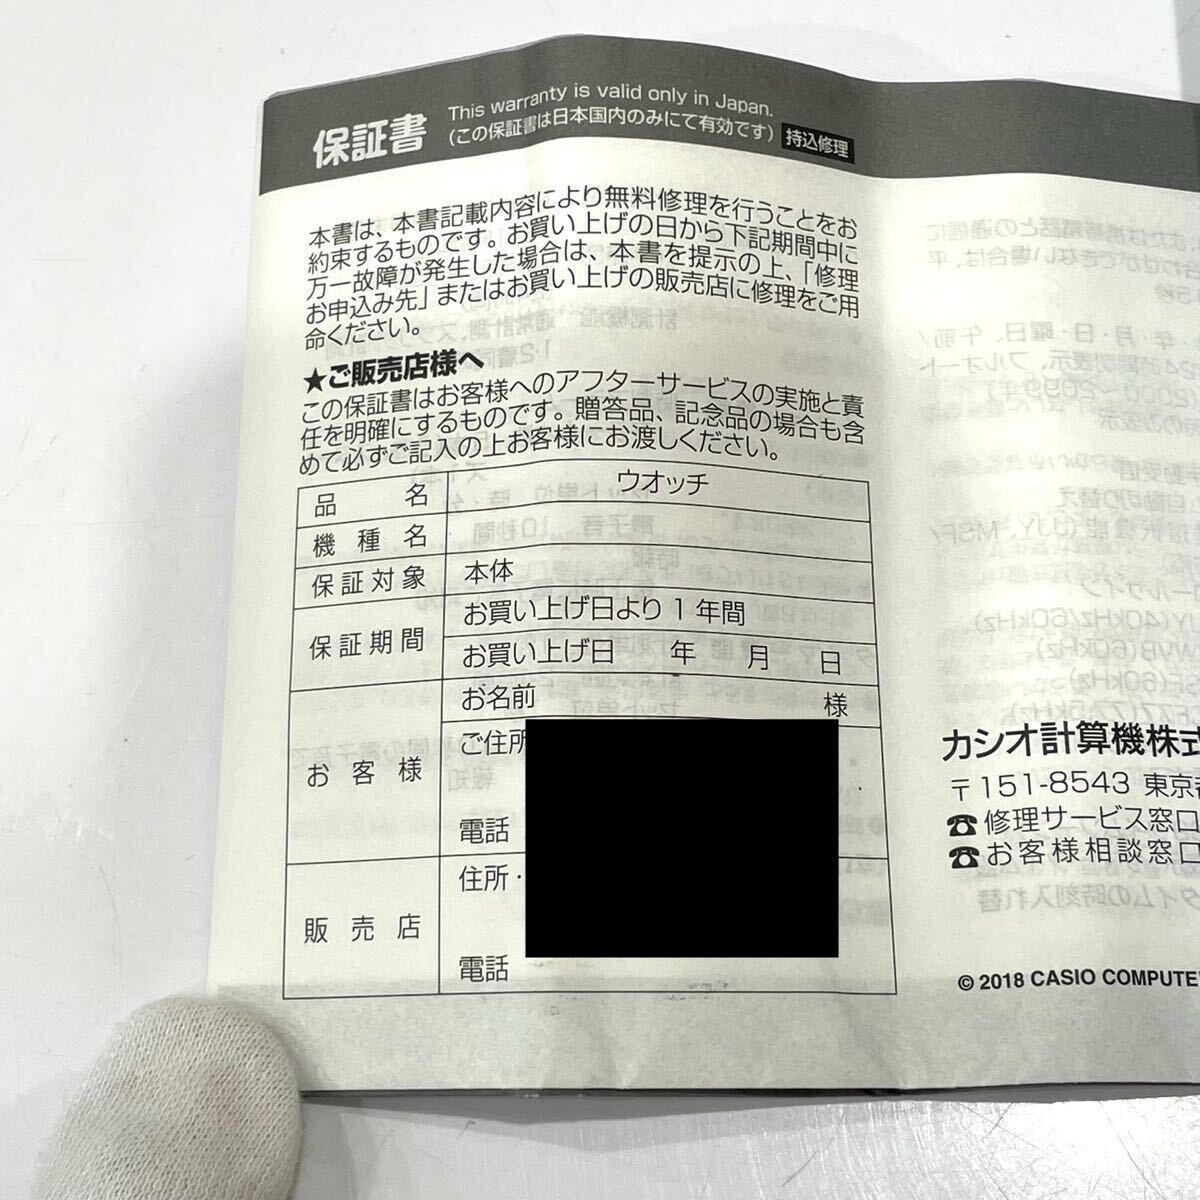 保証書
This warranty is valid only in Japan.
(この保証書は日本国内のみにて有効です) 持込修理
本書は、本書記載内容により無料修理を行うことをお
約束するものです。お買い上げの日から下記期間中に
万一故障が発生した場合は、本書を提示の上、「修理
お申込み先」またはお買い上げの販売店に修理をご用
命ください。
★ご販売店様へ
この保証書はお客様へのアフターサービスの実施と責
任を明確にするものです。贈答品、記念品の場合も含
めて必ずご記入の上お客様にお渡しください。
品名 ウオッチ
機種名
保証対象 本体
保証期間 お買い上げ日より1年間
お買い上げ日 年 月 日
お客様 お名前 様
ご住所
電話
販売店 住所・
電話
カシオ計算機株式
〒151-8543 東京都
☎修理サービス窓口
☎お客様相談窓口
© 2018 CASIO COMPUTE